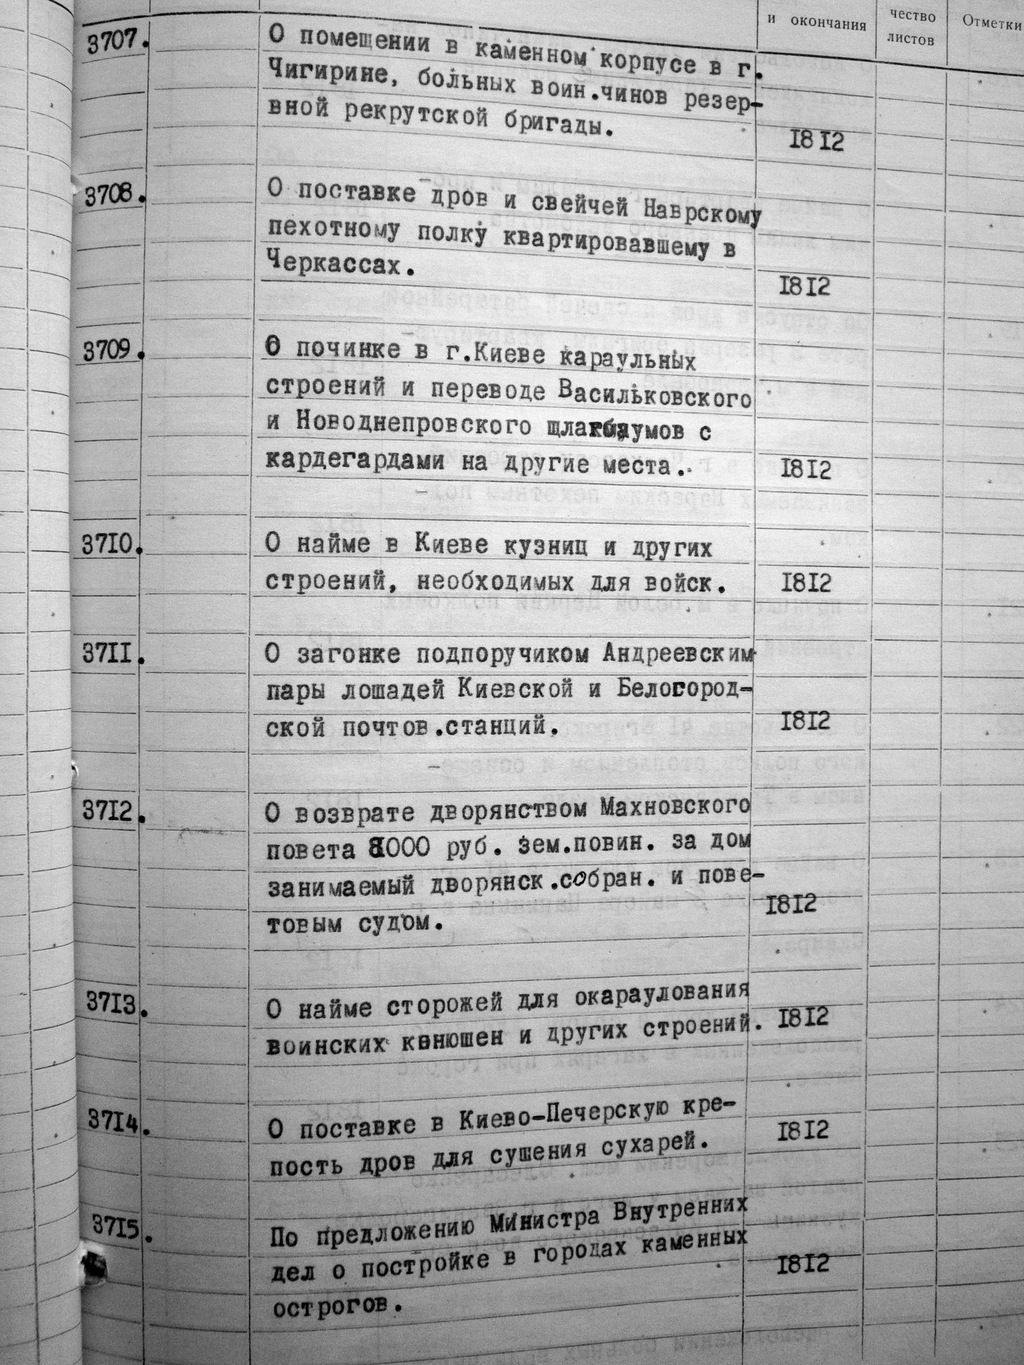 и окончания
чество
листов
Отметки
3707.
О помещении в каменном корпусе в г.
Чигирине, больных воин.чинов резер-
вной рекрутской бригады.
1812
3708.
О поставке дров и свейчей Наврскому
пехотному полку квартировавшему в
Черкассах.
1812
3709.
О починке в г.Киеве караульных
строений и переводе Васильковского
и Новоднепровского шлагбаумов с
кардегардами на другие места.
1812
3710.
О найме в Киеве кузниц и других
строений, необходимых для войск.
1812
3711.
О загонке подпоручиком Андреевским
пары лошадей Киевской и Белогород-
ской почтов.станций.
1812
3712.
О возврате дворянством Махновского
повета 8000 руб. Зем.повин. за дом
занимаемый дворянск.собран. и пове-
товым судом.
1812
3713.
О найме сторожей для окарауловання
воинских конюшен и других строений.
1812
3714.
О поставке в Киево-Печерскую кре-
пость дров для сушения сухарей.
1812
3715.
По предложению Министра Внутренних
дел о постройке в городах каменных
острогов.
1812